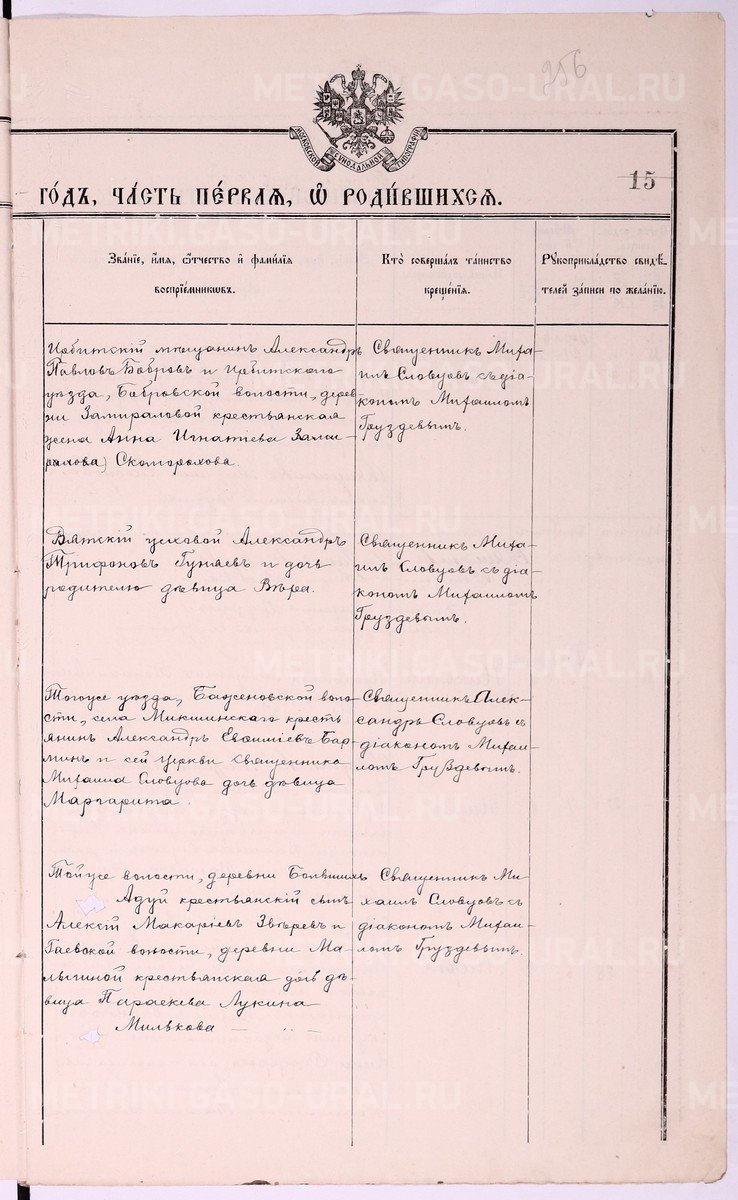 5
256
МОСКОВСКОЙ СѴНОДАЛЬНОЙ ТИПОГРАФІИ
15
ГО́ДЪ, ЧА́СТЬ ПЕ́РВАЯ, Ѡ РОДИ́ВШИХСЯ.
Зва́нїе, и́мя, ѻ́тчество и҆ фами́лїя
воспрїе́мниковъ.
Кто̀ соверша́лъ та́инство
креще́нїя.
Рꙋкоприкла́дство свидѣ́-
телей за́писи по жела́нїю.
Ирбитскій мѣщанинъ Александръ
Павловъ Бобровъ и Ирбитскаго
уѣзда, Бобровской волости, дерев
ни Замираловой крестьянская
жена Анна Игнатіева Зами-
ралова) Скоморохова.
Священникъ Миха-
илъ Словцовъ съ діа-
кономъ Михаиломъ
Груздевымъ.
Вятскій цеховой Александръ
Трифоновъ Гуняевъ и дочь
родителю дѣвица Вѣра.
Священникъ Миха-
илъ Словцовъ съ діа-
кономъ Михаиломъ
Груздевымъ.
Тогоже уѣзда, Баженовской воло-
сти, села Микшинскаго кресть
янинъ Александръ Евѳиміевъ Бар-
минъ и сей церкви священника
Михаила Словцова дочь дѣвица
Маргарита.
Священникъ Алек-
сандръ Словцовъ съ
діакономъ Михаи-
ломъ Груздевымъ.
Тойже волости, деревни Большихъ
Адуй крестьянскій сынъ
Алексій Макаріевъ Звѣревъ и
Гаевской волости, деревни Ма-
лыгиной крестьянская дочь дѣ-
вица Параскева Лукина
Милькова
Священникъ Ми-
хаилъ Словцовъ съ
діакономъ Михаи-
ломъ Груздевымъ.
METRIKI.GASO-URAL.RU